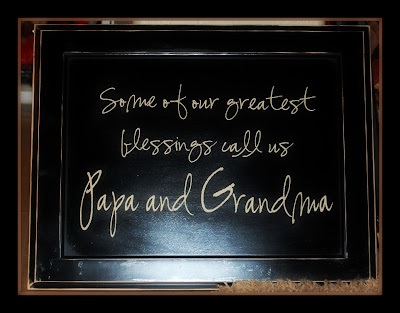 Some of our greatest
blessings call us
Papa and Grandma